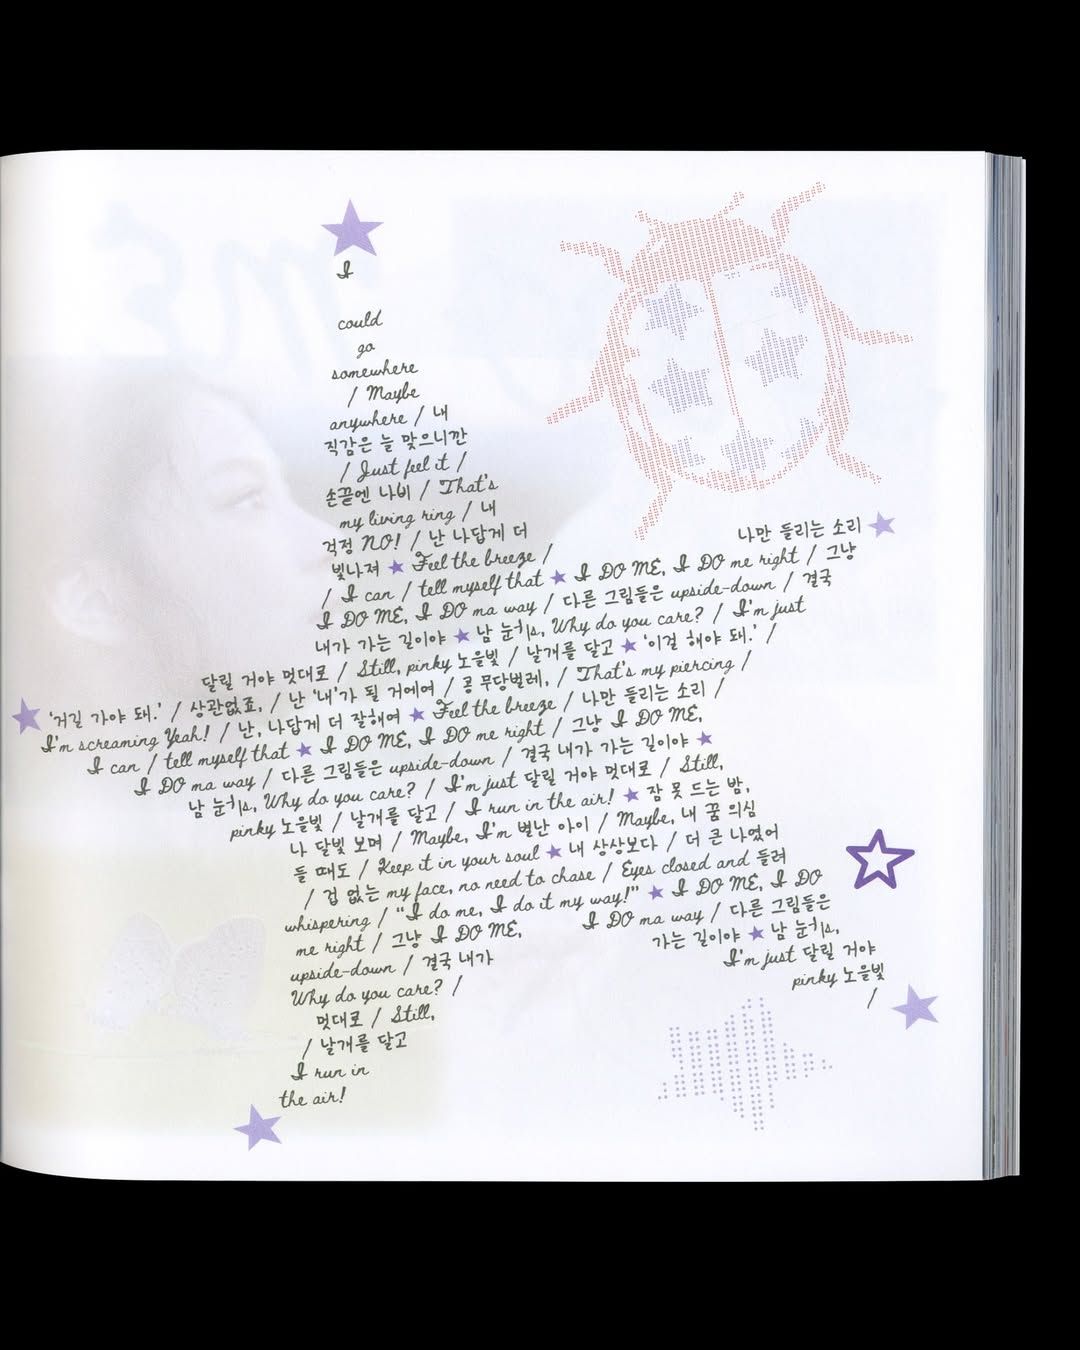 I
could
go
somewhere
/ Maybe
anywhere / 내
직감은 늘 맞으니깐
/ Just feel it /
손끝엔 나비 / That's
my living ring / 내
걱정 NO! / 난 나답게 더
빛나져 ★ Feel the breeze /
나만 들리는 소리
/ I can / tell myself that ★ I DO ME, I DO me right / 그냥
I DO ME, I DO ma way / 다른 그림들은 upside-down / 결국
내가 가는 길이야 ★ 남 눈치s, Why do you care? / I'm just
달릴 거야 멋대로 / Still, pinky 노을빛 / 날개를 달고 ★ '이걸 해야 돼.' /
'거길 가야 돼.' / 상관없죠, / 난 '내'가 될 거에여 / 콩 무당벌레, / That's my piercing /
I'm screaming Yeah! / 난, 나답게 더 잘해여 ★ Feel the breeze / 나만 들리는 소리 /
I can / tell myself that ★ I DO ME, I DO me right / 그냥 I DO ME,
I DO ma way / 다른 그림들은 upside-down / 결국 내가 가는 길이야 ★
남 눈치s, Why do you care? / I'm just 달릴 거야 멋대로 / Still,
pinky 노을빛 / 날개를 달고 / I run in the air! ★ 잠 못 드는 밤,
나 달빛 보며 / Maybe, I'm 별난 아이 / Maybe, 내 꿈 의심
들 때도 / Keep it in your soul ★ 내 상상보다 / 더 큰 나였어
/ 겁 없는 my face, no need to chase / Eyes closed and 들려
whispering / "I do me, I do it my way!" ★ I DO ME, I DO
me right / 그냥 I DO ME, I DO ma way / 다른 그림들은
upside-down / 결국 내가 가는 길이야 ★ 남 눈치s,
Why do you care? / I'm just 달릴 거야
멋대로 / Still, pinky 노을빛
/ 날개를 달고 /
I run in
the air!